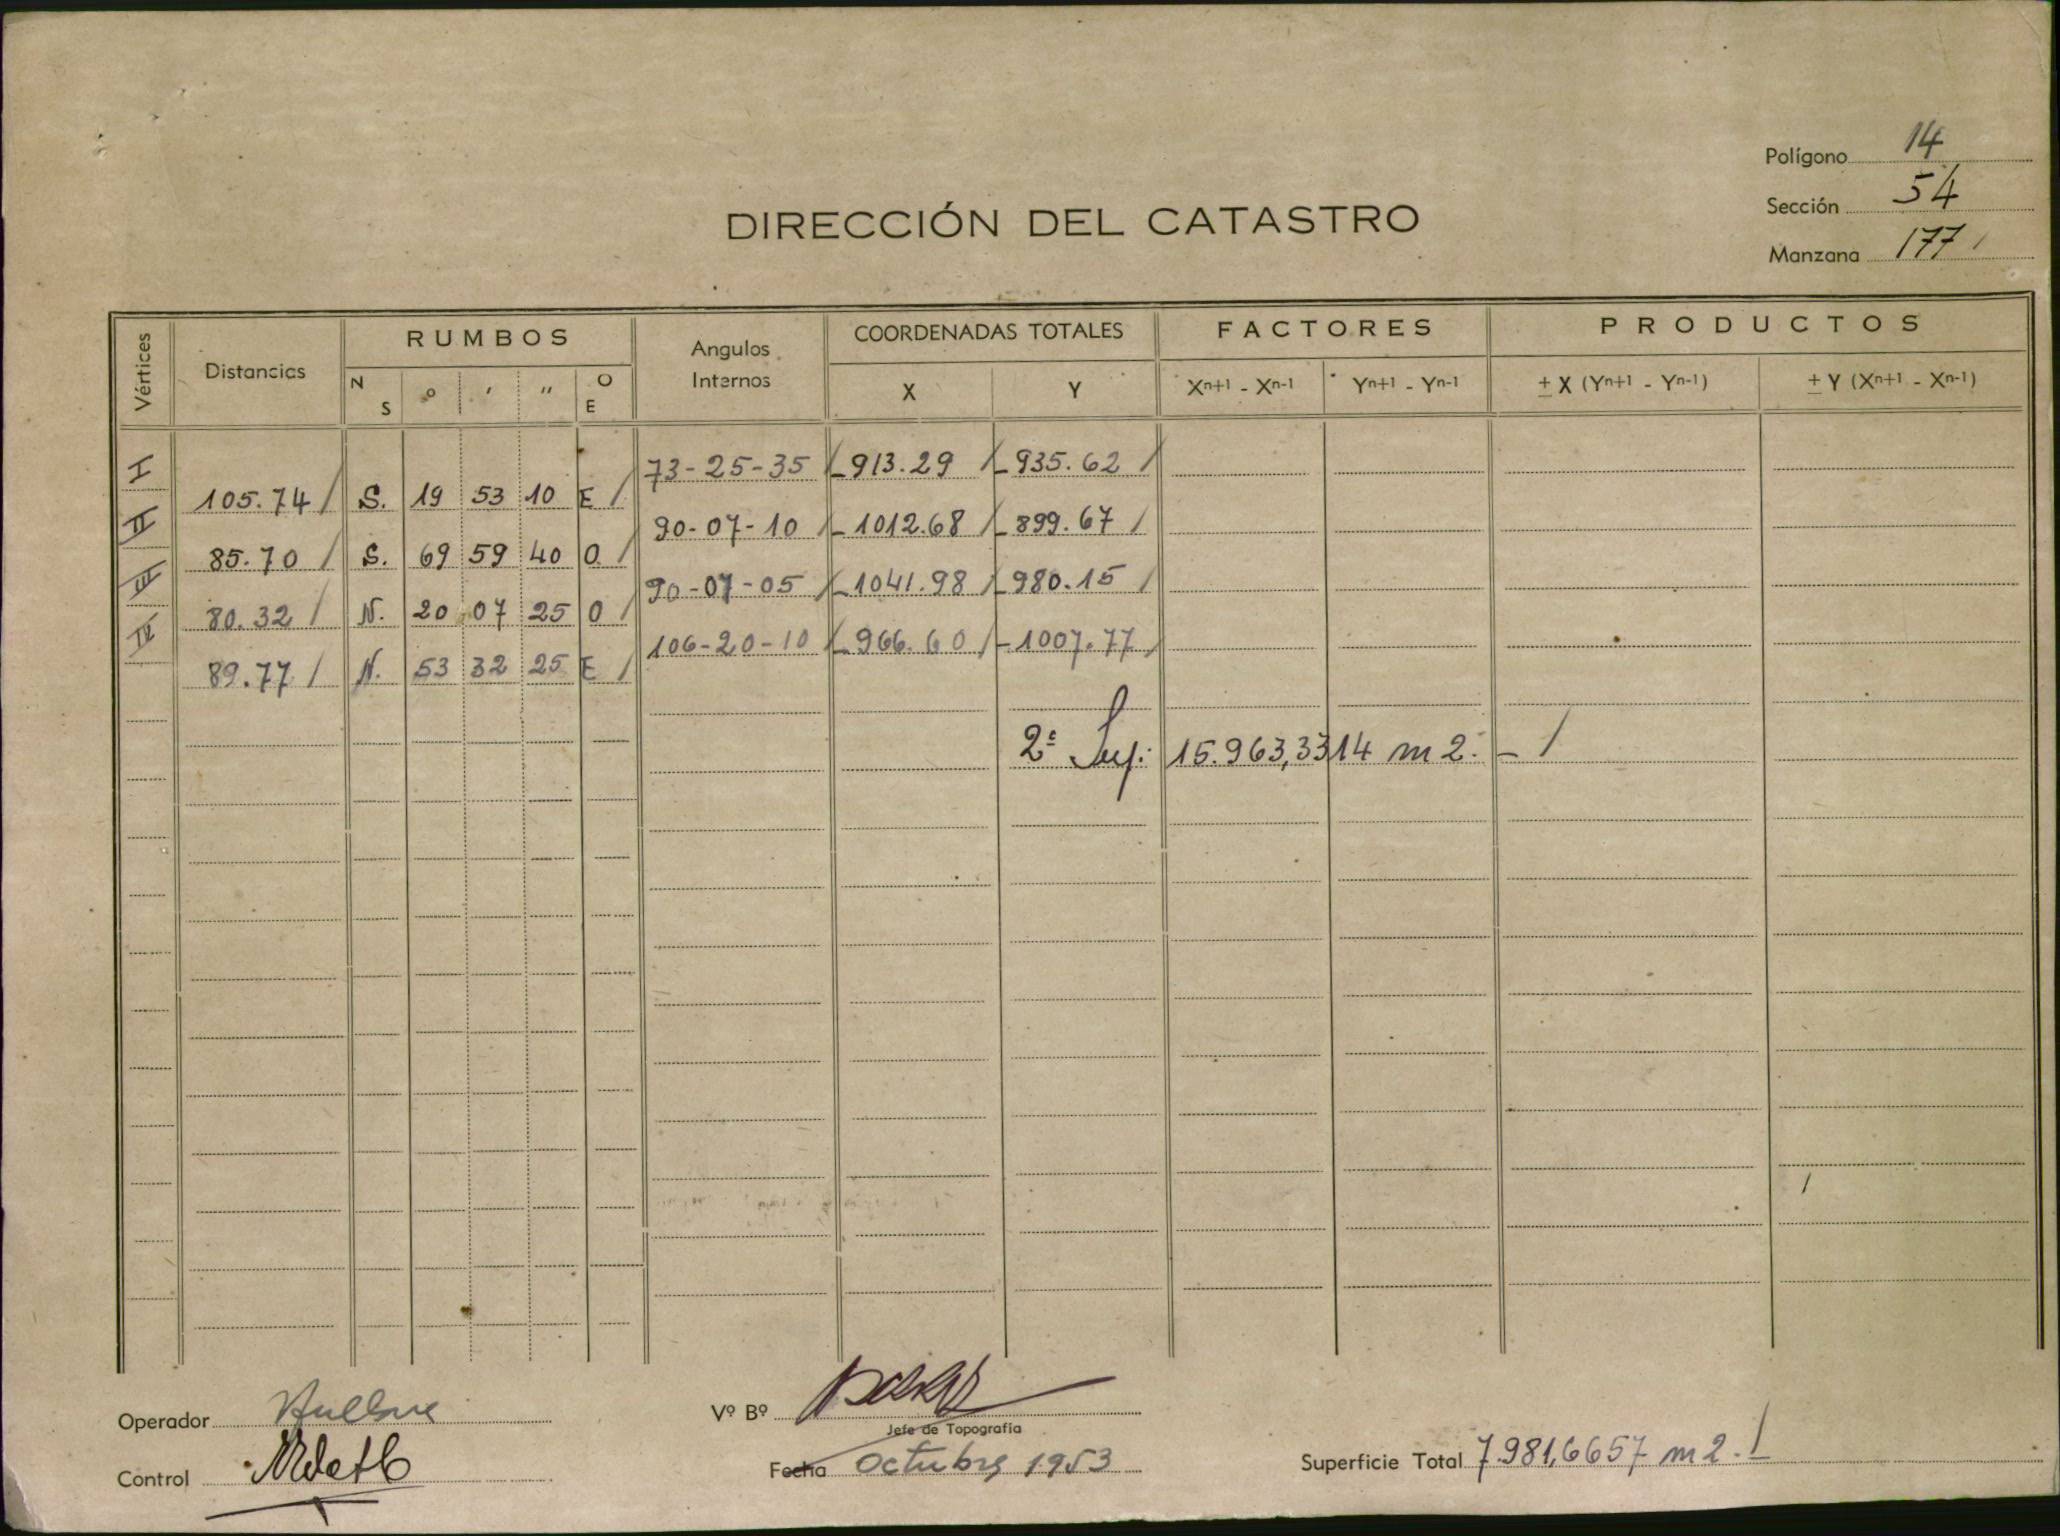 Polígono 14
Sección 54
DIRECCIÓN DEL CATASTRO
Manzana 177 /
Vértices Distancias RUMBOS Angulos Internos COORDENADAS TOTALES FACTORES PRODUCTOS
N S ° ' " O E X Y Xn+1 - Xn-1 Yn+1 - Yn-1 ± X (Yn+1 - Yn-1) ± Y (Xn+1 - Xn-1)
I 73-25-35 / -913.29 / -935.62 /
105.74 / S. 19 53 10 E /
II 90-07-10 / -1012.68 / -899.67 /
85.70 / S. 69 59 40 O /
III 90-07-05 / -1041.98 / -980.15 /
80.32 / N. 20 07 25 O /
IV 106-20-10 / -966.60 / -1007.77 /
89.77 / N. 53 32 25 E /
2ª Sup: 15.963,3314 m2. - /
Operador
Vº Bº
Jefe de Topografía
Control
Fecha Octubre 1953
Superficie Total 7.981,6657 m2. /